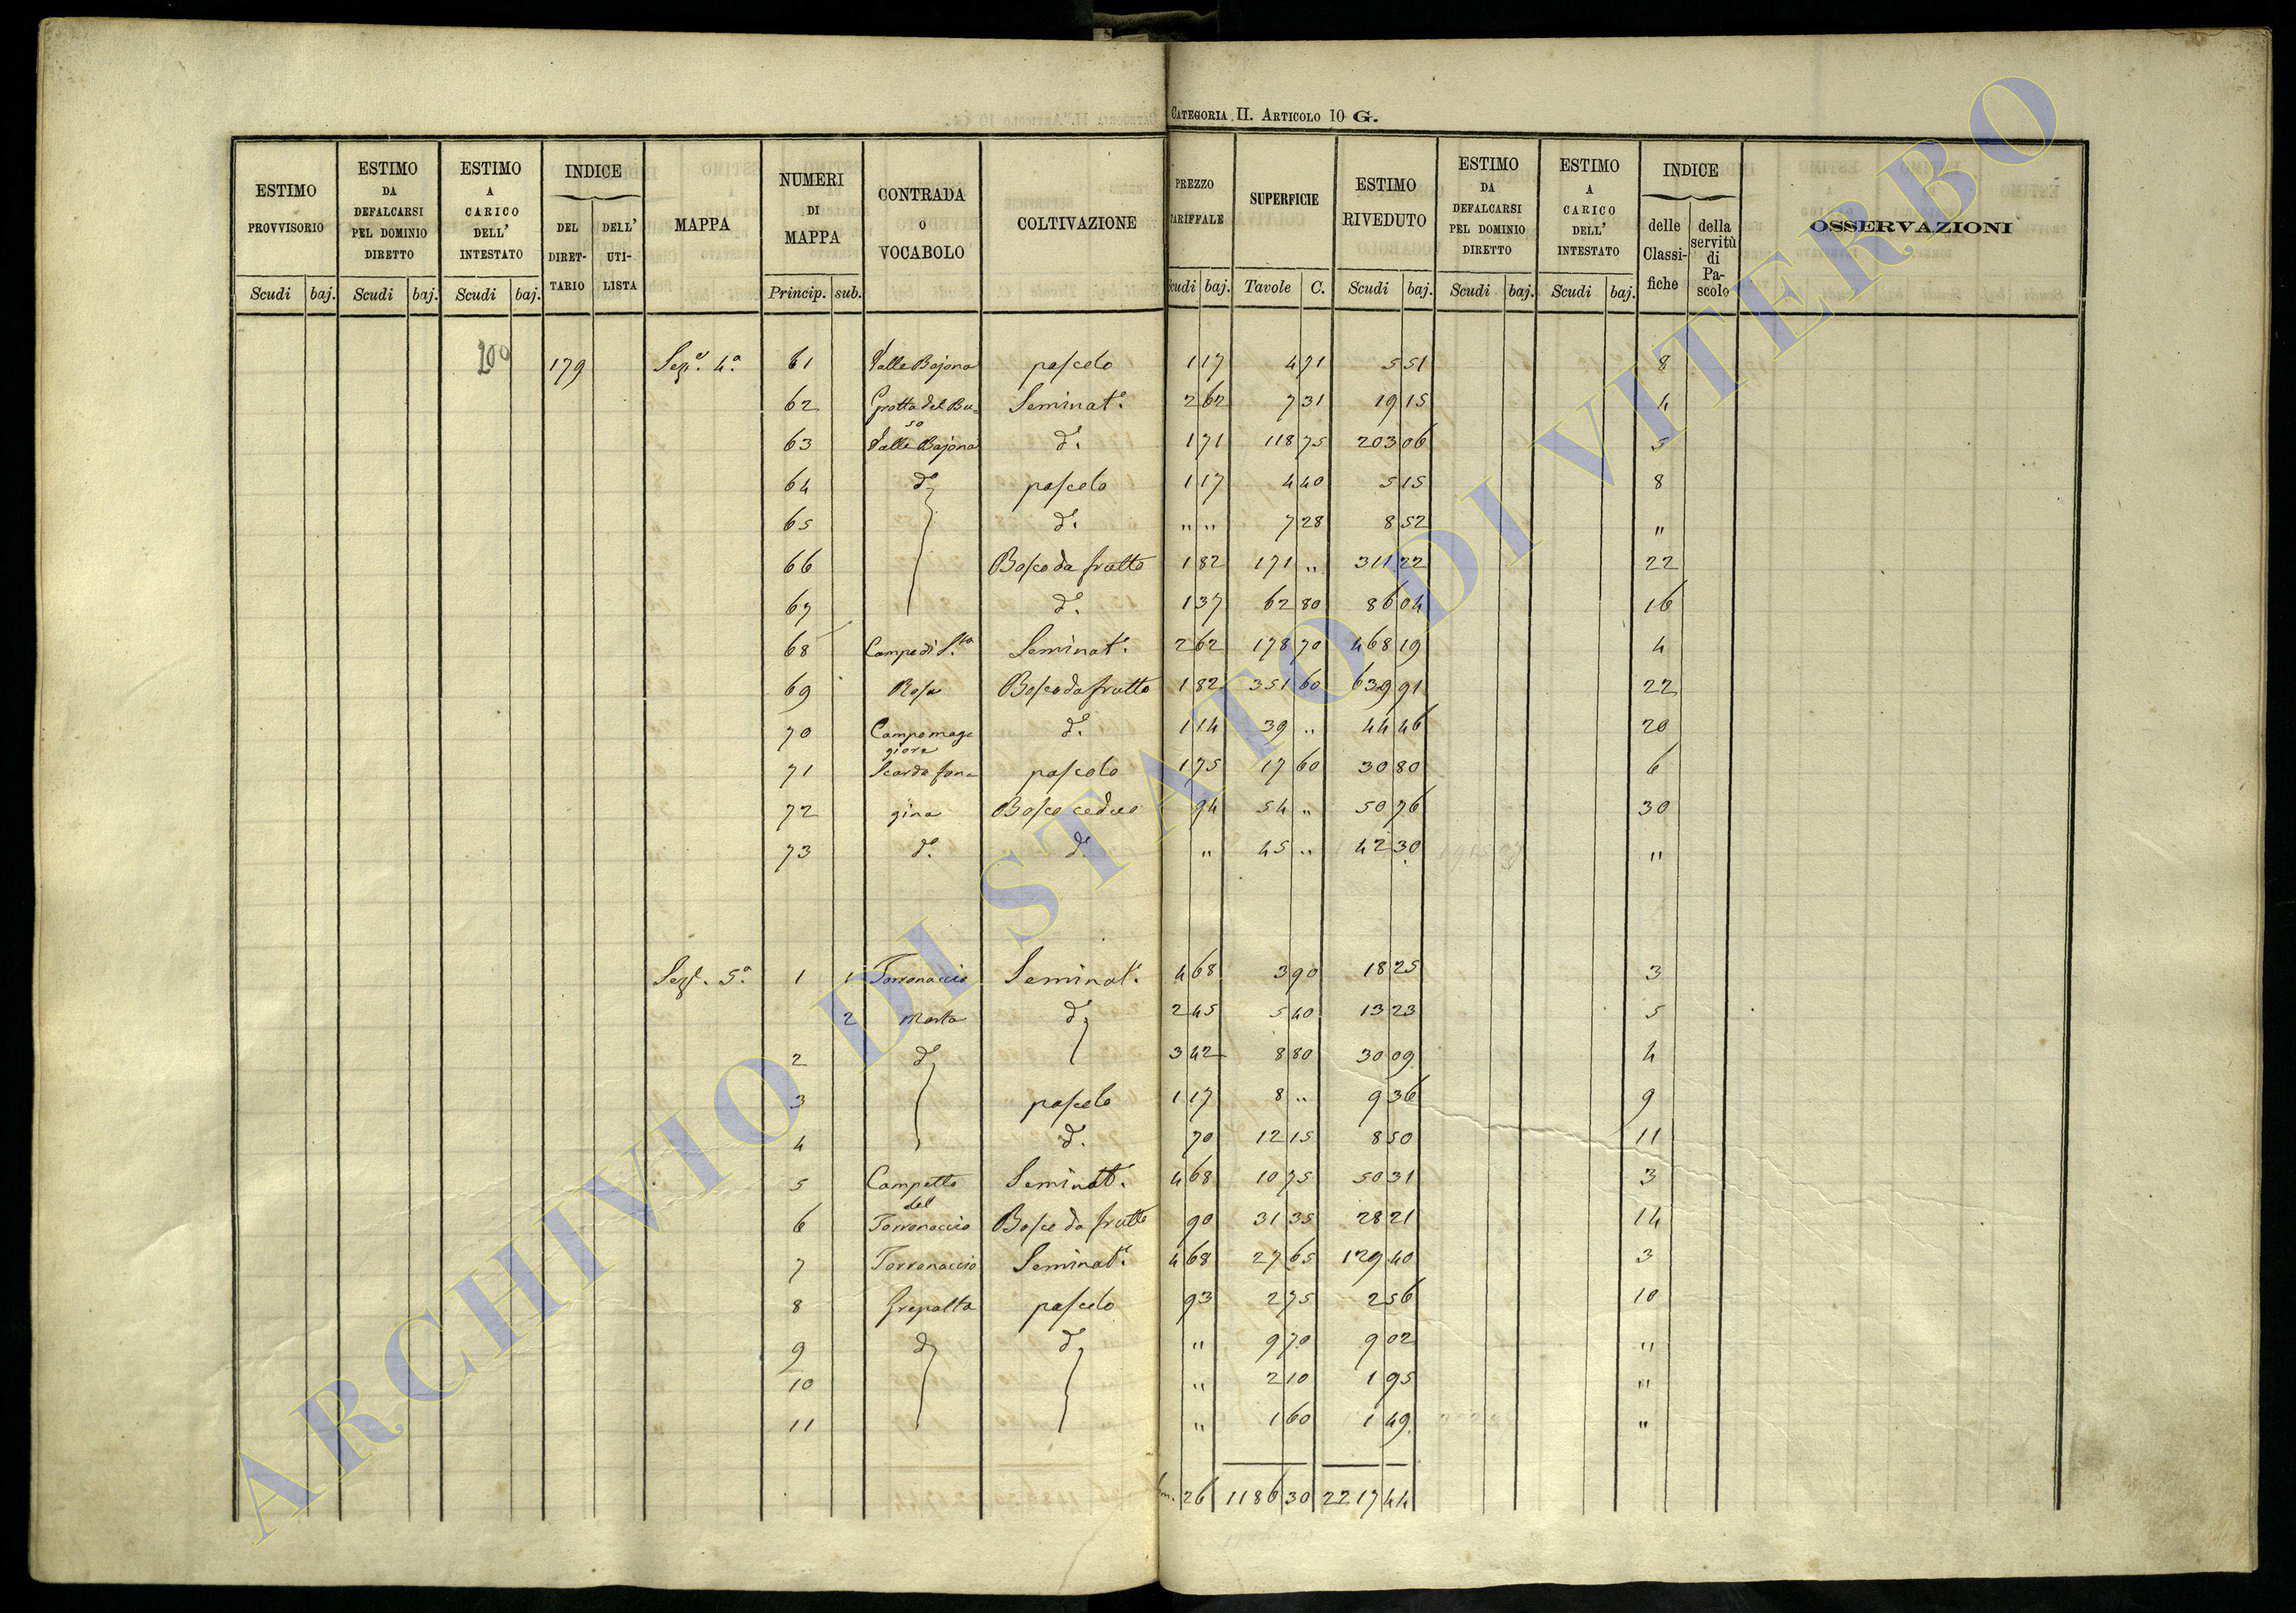 CATEGORIA II. ARTICOLO 10 G.
ESTIMO PROVVISORIO Scudi baj.
ESTIMO DA DEFALCARSI PEL DOMINIO DIRETTO Scudi baj.
ESTIMO A CARICO DELL' INTESTATO Scudi baj.
INDICE DEL DIRETTARIO DELL' UTILISTA
MAPPA
NUMERI DI MAPPA Princip. sub.
CONTRADA O VOCABOLO
COLTIVAZIONE
PREZZO TARIFFALE Scudi baj.
SUPERFICIE Tavole C.
ESTIMO RIVEDUTO Scudi baj.
ESTIMO DA DEFALCARSI PEL DOMINIO DIRETTO Scudi baj.
ESTIMO A CARICO DELL' INTESTATO Scudi baj.
INDICE delle Classifiche della servitù di Pascolo
OSSERVAZIONI
200 179 Sez.e 4.a 61 Valle Bajona pascolo 1 17 4 71 5 51 8
62 Grotta del Bu- Seminat.o 2 62 7 31 19 15 4
so
63 Valle Bajona d.o 1 71 118 75 203 06 5
64 d.o pascolo 1 17 4 40 5 15 8
65 d.o " " 7 28 8 52 "
66 Bosco da frutto 1 82 171 " 311 22 22
67 d.o 1 37 62 80 86 04 16
68 Campo di S.ta Seminat.o 2 62 178 70 468 19 4
69 Rosa Bosco da frutto 1 82 351 60 639 91 22
70 Campo mag- d.o 1 14 39 " 44 46 20
giore
71 Scarda fora- pascolo 1 75 17 60 30 80 6
72 gina Bosco ceduo 94 54 " 50 76 30
73 d.o d.o " 45 " 42 30 "
Sez.e 5.a 1 1 Torronaccio Seminat.o 4 68 3 90 18 25 3
2 Marta d.o 2 45 5 40 13 23 5
2 d.o 3 42 8 80 30 09 4
3 pascolo 1 17 8 " 9 36 9
4 d.o 70 12 15 8 50 11
5 Campetto Seminat.o 4 68 10 75 50 31 3
del
6 Torronaccio Bosco da frutto 90 31 35 28 21 14
7 Torronaccio Seminat.o 4 68 27 65 129 40 3
8 Grepalta pascolo 93 2 75 2 56 10
9 d.o d.o " 9 70 9 02 "
10 " 2 10 1 95 "
11 " 1 60 1 49 "
26 1186 30 2217 44
ARCHIVIO DI STATO DI VITERBO